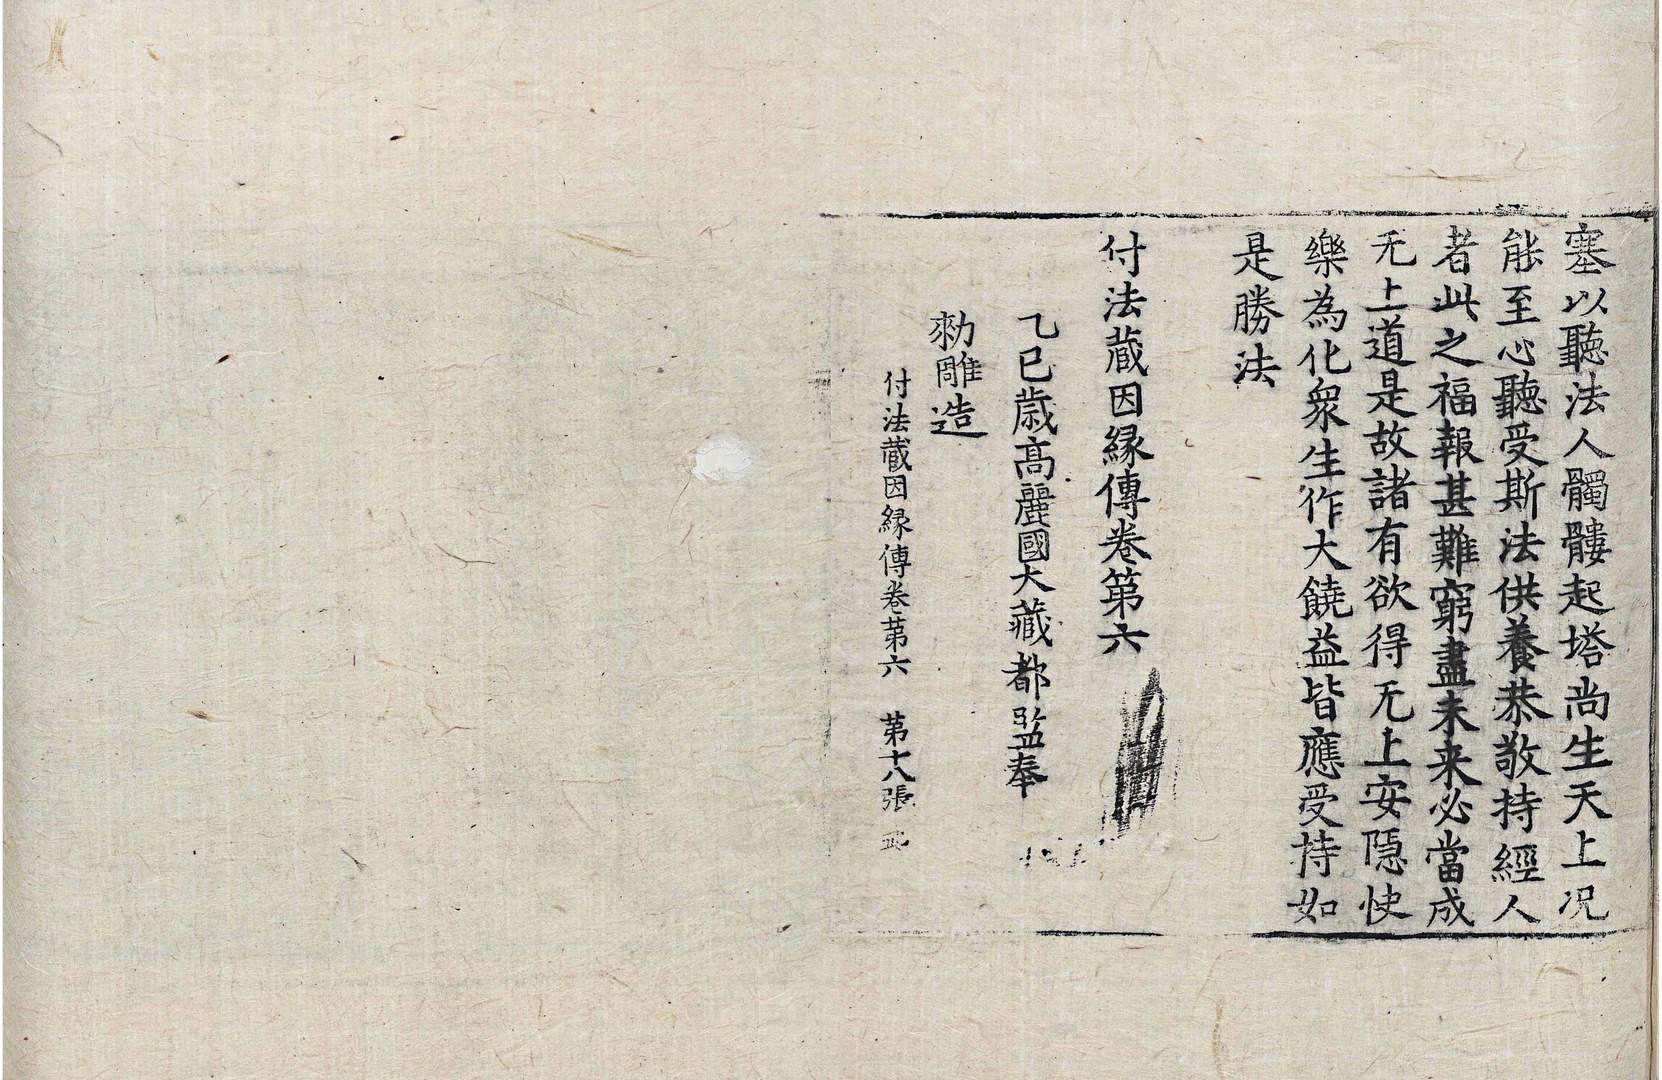 塞以聽法人髑髏起塔尚生天上况
能至心聽受斯法供養恭敬持經人
者此之福報甚難窮盡未来必當成
无上道是故諸有欲得无上安隱快
樂為化衆生作大饒益皆應受持如
是勝法
付法藏因緣傳卷第六
乙巳歲高麗國大藏都監奉
勑雕造
付法藏因緣傳卷第六 第十八張